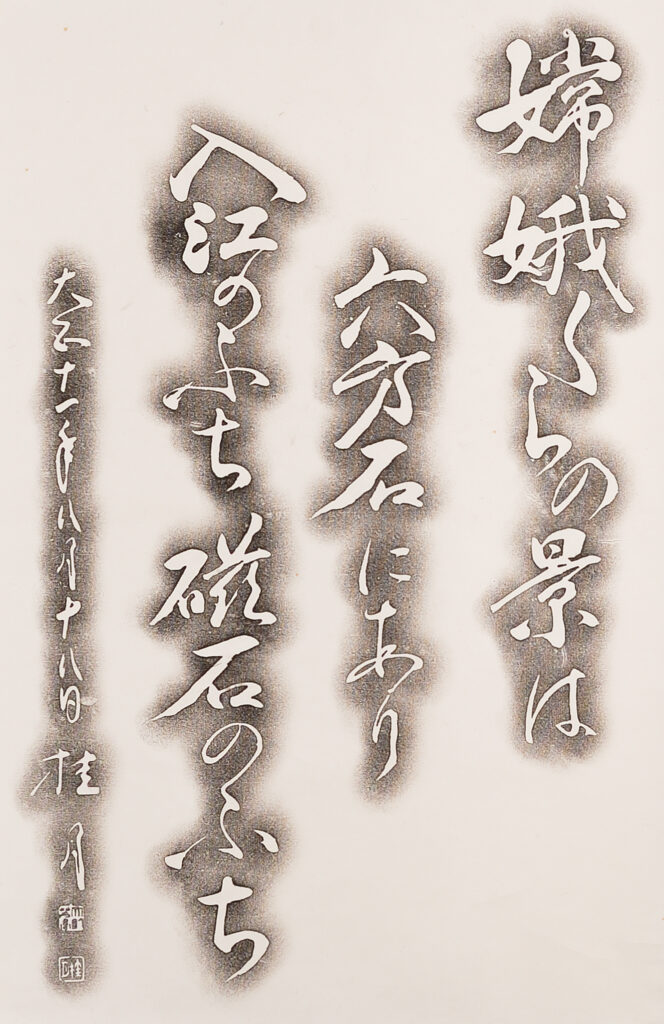 嫦娥くらの景は
六方石にあり
入江のふち磁石のふち
大正十一年八月十八日 桂月